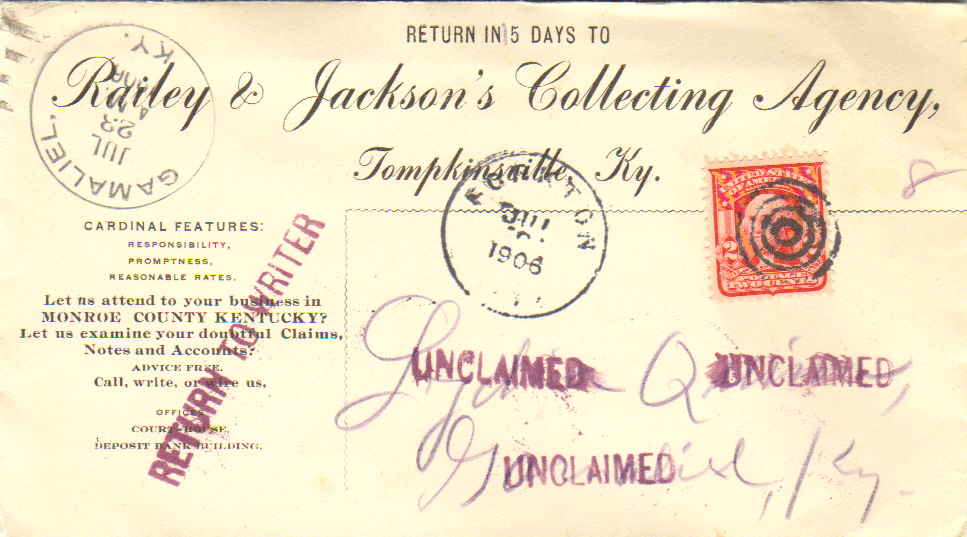 RETURN IN 5 DAYS TO
Railey & Jackson's Collecting Agency,
Tompkinsville, Ky.
GAMALIEL, KY.
JUL
23
1906
UNITED STATES
OF AMERICA
2 2
POSTAGE
TWO CENTS
8
CARDINAL FEATURES:
RESPONSIBILITY,
PROMPTNESS,
REASONABLE RATES.
Let us attend to your business in
MONROE COUNTY KENTUCKY?
Let us examine your doubtful Claims,
Notes and Accounts?
ADVICE FREE.
Call, write, or wire us,
OFFICES
COURT-HOUSE,
DEPOSIT BANK BUILDING.
RETURN TO WRITER
UNCLAIMED
UNCLAIMED
Gamaliel, Ky.
UNCLAIMED